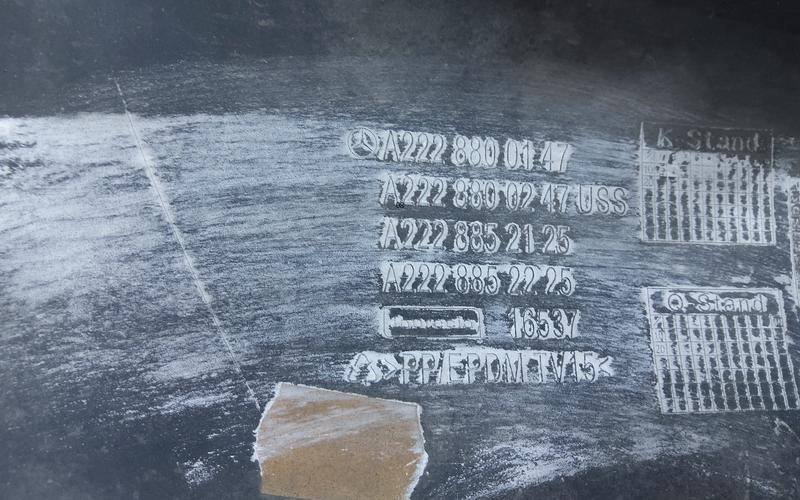 A222 880 01 47
A222 880 02 47 USS
A222 885 21 25
A222 885 22 25
16537
>PP/EPDM TV15<
K-Stand
Q-Stand